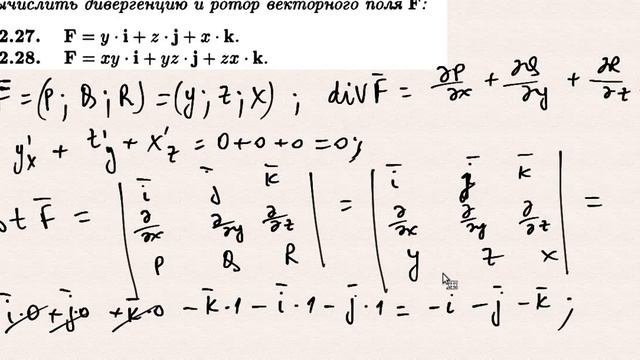 ычислить дивергенцию и ротор векторного поля F:
2.27. F = y · i + z · j + x · k.
2.28. F = xy · i + yz · j + zx · k.
F̄ = (P; Q; R) = (y; z; x) ; div F̄ = ∂P/∂x + ∂Q/∂y + ∂R/∂z
y'x + z'y + x'z = 0+0+0 = 0;
ot F̄ = | ī j̄ k̄ | = | ī j̄ k̄ | =
| ∂/∂x ∂/∂y ∂/∂z | | ∂/∂x ∂/∂y ∂/∂z |
| P Q R | | y z x |
ī·0 + j̄·0 + k̄·0 − k̄·1 − ī·1 − j̄·1 = −i − j̄ − k̄ ;